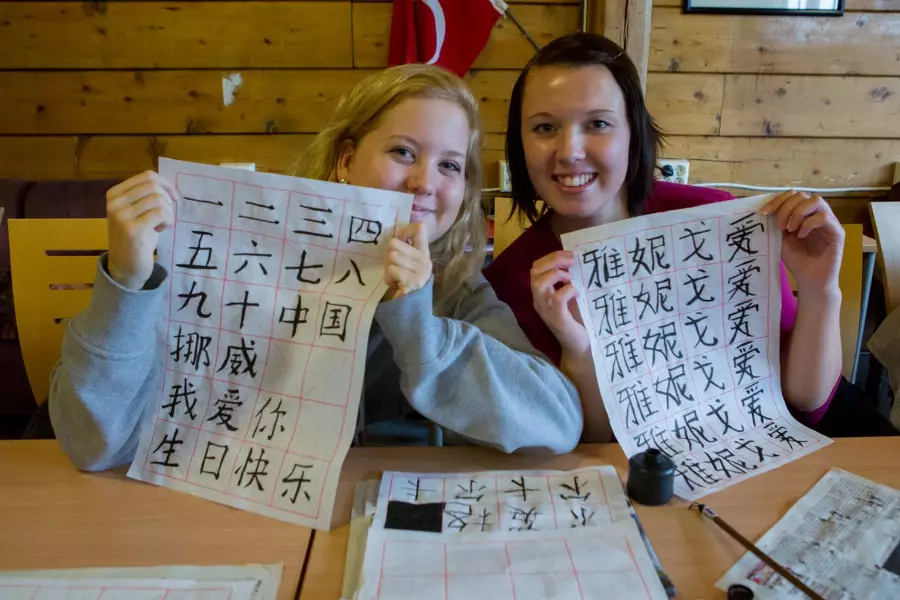 一二三四
五六七八
九十中国
挪威
我爱你
生日快乐
雅妮戈爱
雅妮戈爱
雅妮戈爱
雅妮戈爱
雅妮戈爱
雅妮戈爱